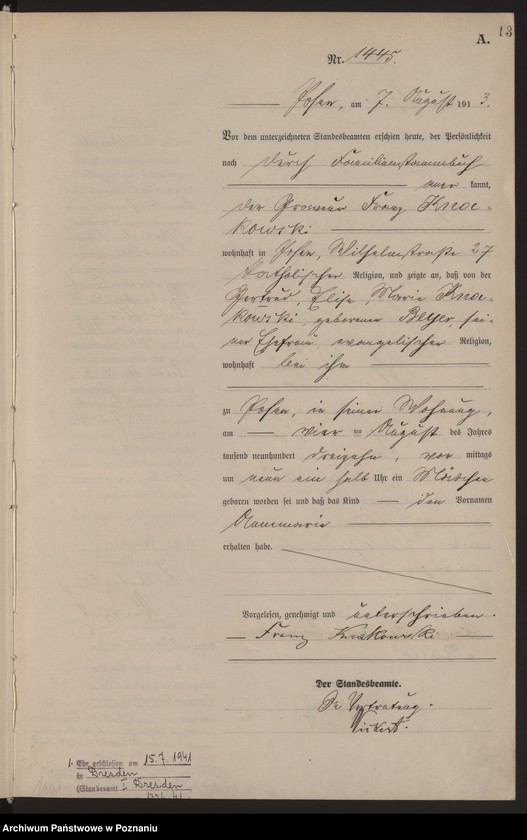 13
A.
Nr. 1445.
Posen, am 7. August 1913.
Vor dem unterzeichneten Standesbeamten erschien heute, der Persönlichkeit
nach durch Familienstammbuch
aner kannt,
der Graveur Franz Knia-
kowski
wohnhaft in Posen, Wilhelmstraße 27
katholischer Religion, und zeigte an, daß von der
Gertrud, Elise, Marie Knia-
kowski, geborenen Beyer, sei-
ner Ehefrau, evangelischer Religion,
wohnhaft bei ihm
zu Posen, in seiner Wohnung,
am vier ten August des Jahres
tausend neunhundert dreizehn, vor mittags
um neun ein halb Uhr ein Mädchen
geboren worden sei und daß das Kind den Vornamen
Annemarie
erhalten habe.
Vorgelesen, genehmigt und unterschrieben.
Franz Kniakowski
Der Standesbeamte.
In Vertretung.
1. Ehe geschlossen am 15.7.1941
in Dresden
(Standesamt I Dresden
Archiwum Państwowe w Poznaniu